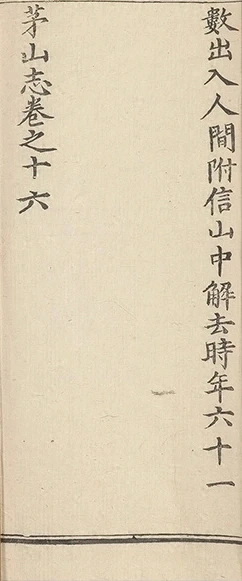 數出入人間附信山中解去時年六十一
茅山志卷之十六